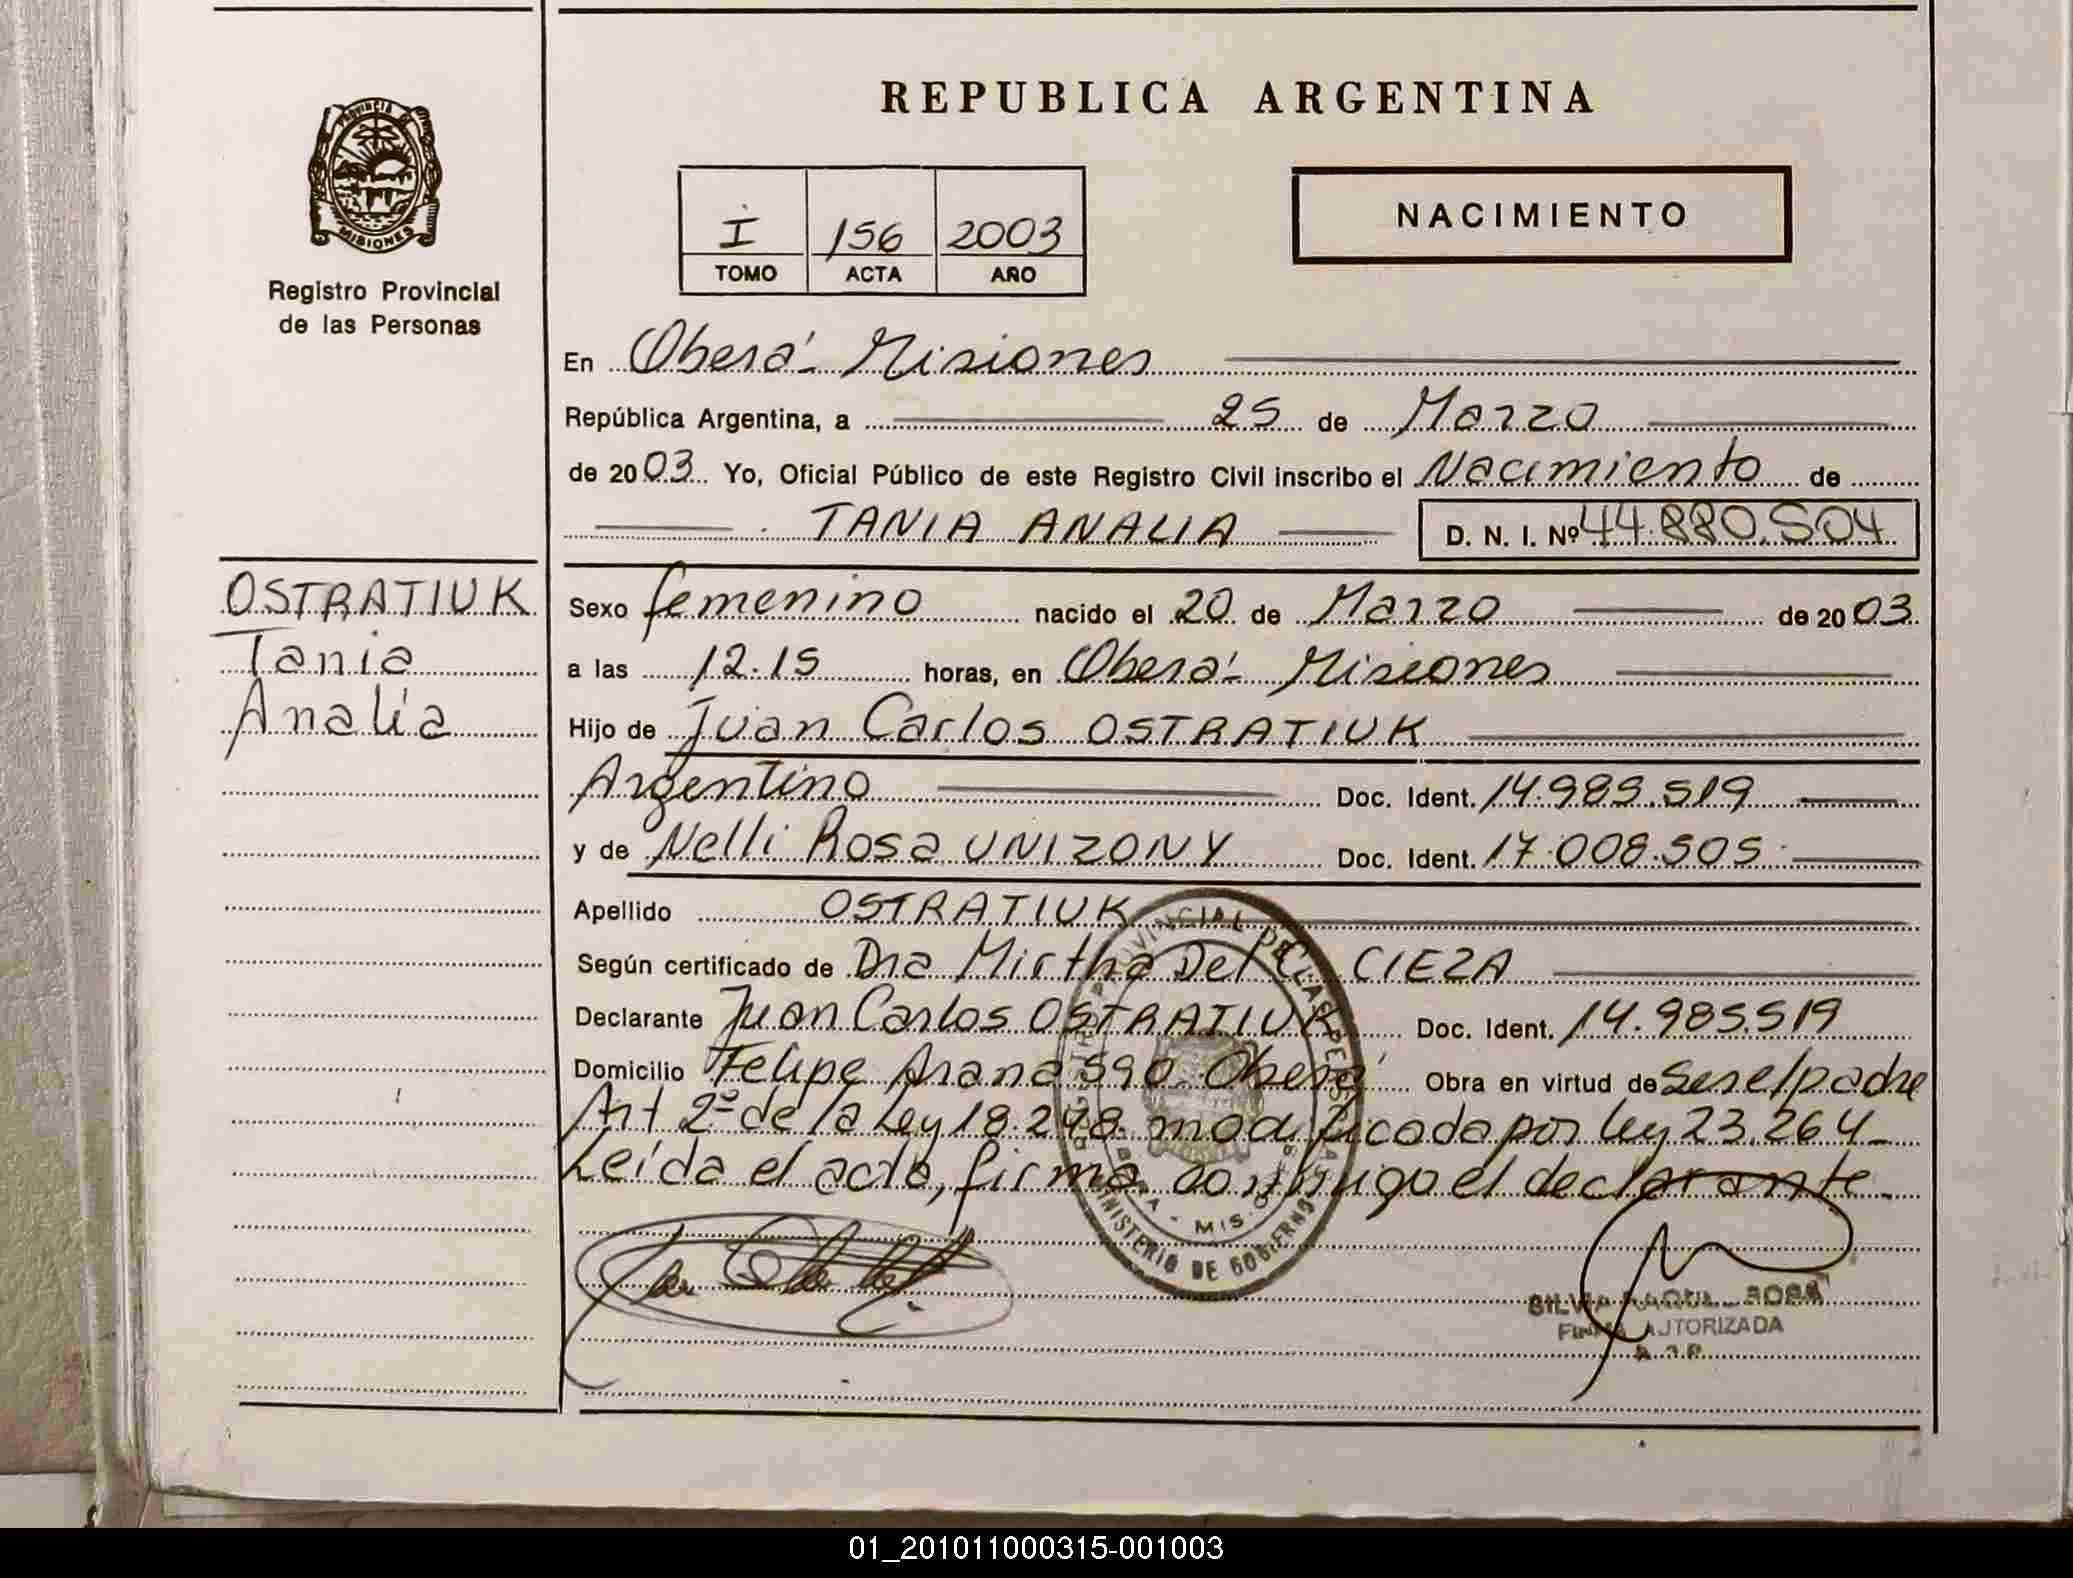 REPUBLICA ARGENTINA
PROVINCIA DE
MISIONES
Registro Provincial
de las Personas
I 156 2003
TOMO ACTA AÑO
NACIMIENTO
En Oberá - Misiones
República Argentina, a 25 de Marzo
de 2003 Yo, Oficial Público de este Registro Civil inscribo el Nacimiento de
TANIA ANALIA D. N. I. Nº 44.880.504
OSTRATIUK
Tania
Analía
Sexo femenino nacido el 20 de Marzo de 2003
a las 12.15 horas, en Oberá - Misiones
Hijo de Juan Carlos OSTRATIUK
Argentino Doc. Ident. 14.985.519
y de Nelli Rosa UNIZONY Doc. Ident. 17.008.505
Apellido OSTRATIUK
Según certificado de Dra Mirtha Del C. CIEZA
Declarante Juan Carlos OSTRATIUK Doc. Ident. 14.985.519
Domicilio Felipe Arana 590 Oberá Obra en virtud de Ser el padre
Art 2º de la Ley 18.248 modificada por Ley 23.264
Leída el acta, firma conmigo el declarante
MINISTERIO DE GOBIERNO
SILVIA RAQUEL
FIRMA AUTORIZADA
01_201011000315-001003